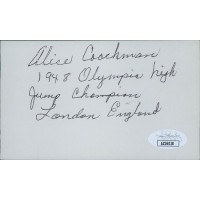 Alice Coachman
1948 Olympic high
Jump Champion
London England
JSA